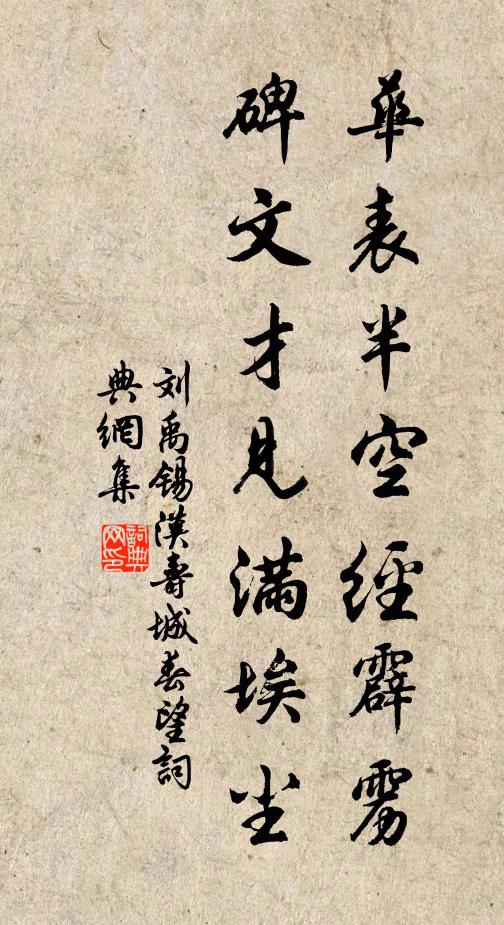 華表半空經霹雳
碑文才見滿埃尘
刘禹锡漢壽城春望詞
典網集
詞典网印